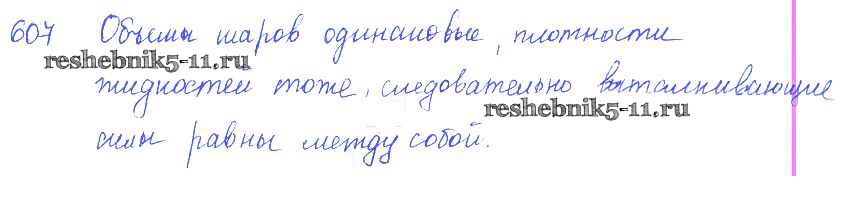 607 Объемы шаров одинаковые, плотности
reshebnik5-11.ru
жидкостей тоже, следовательно выталкивающие
reshebnik5-11.ru
силы равны между собой.